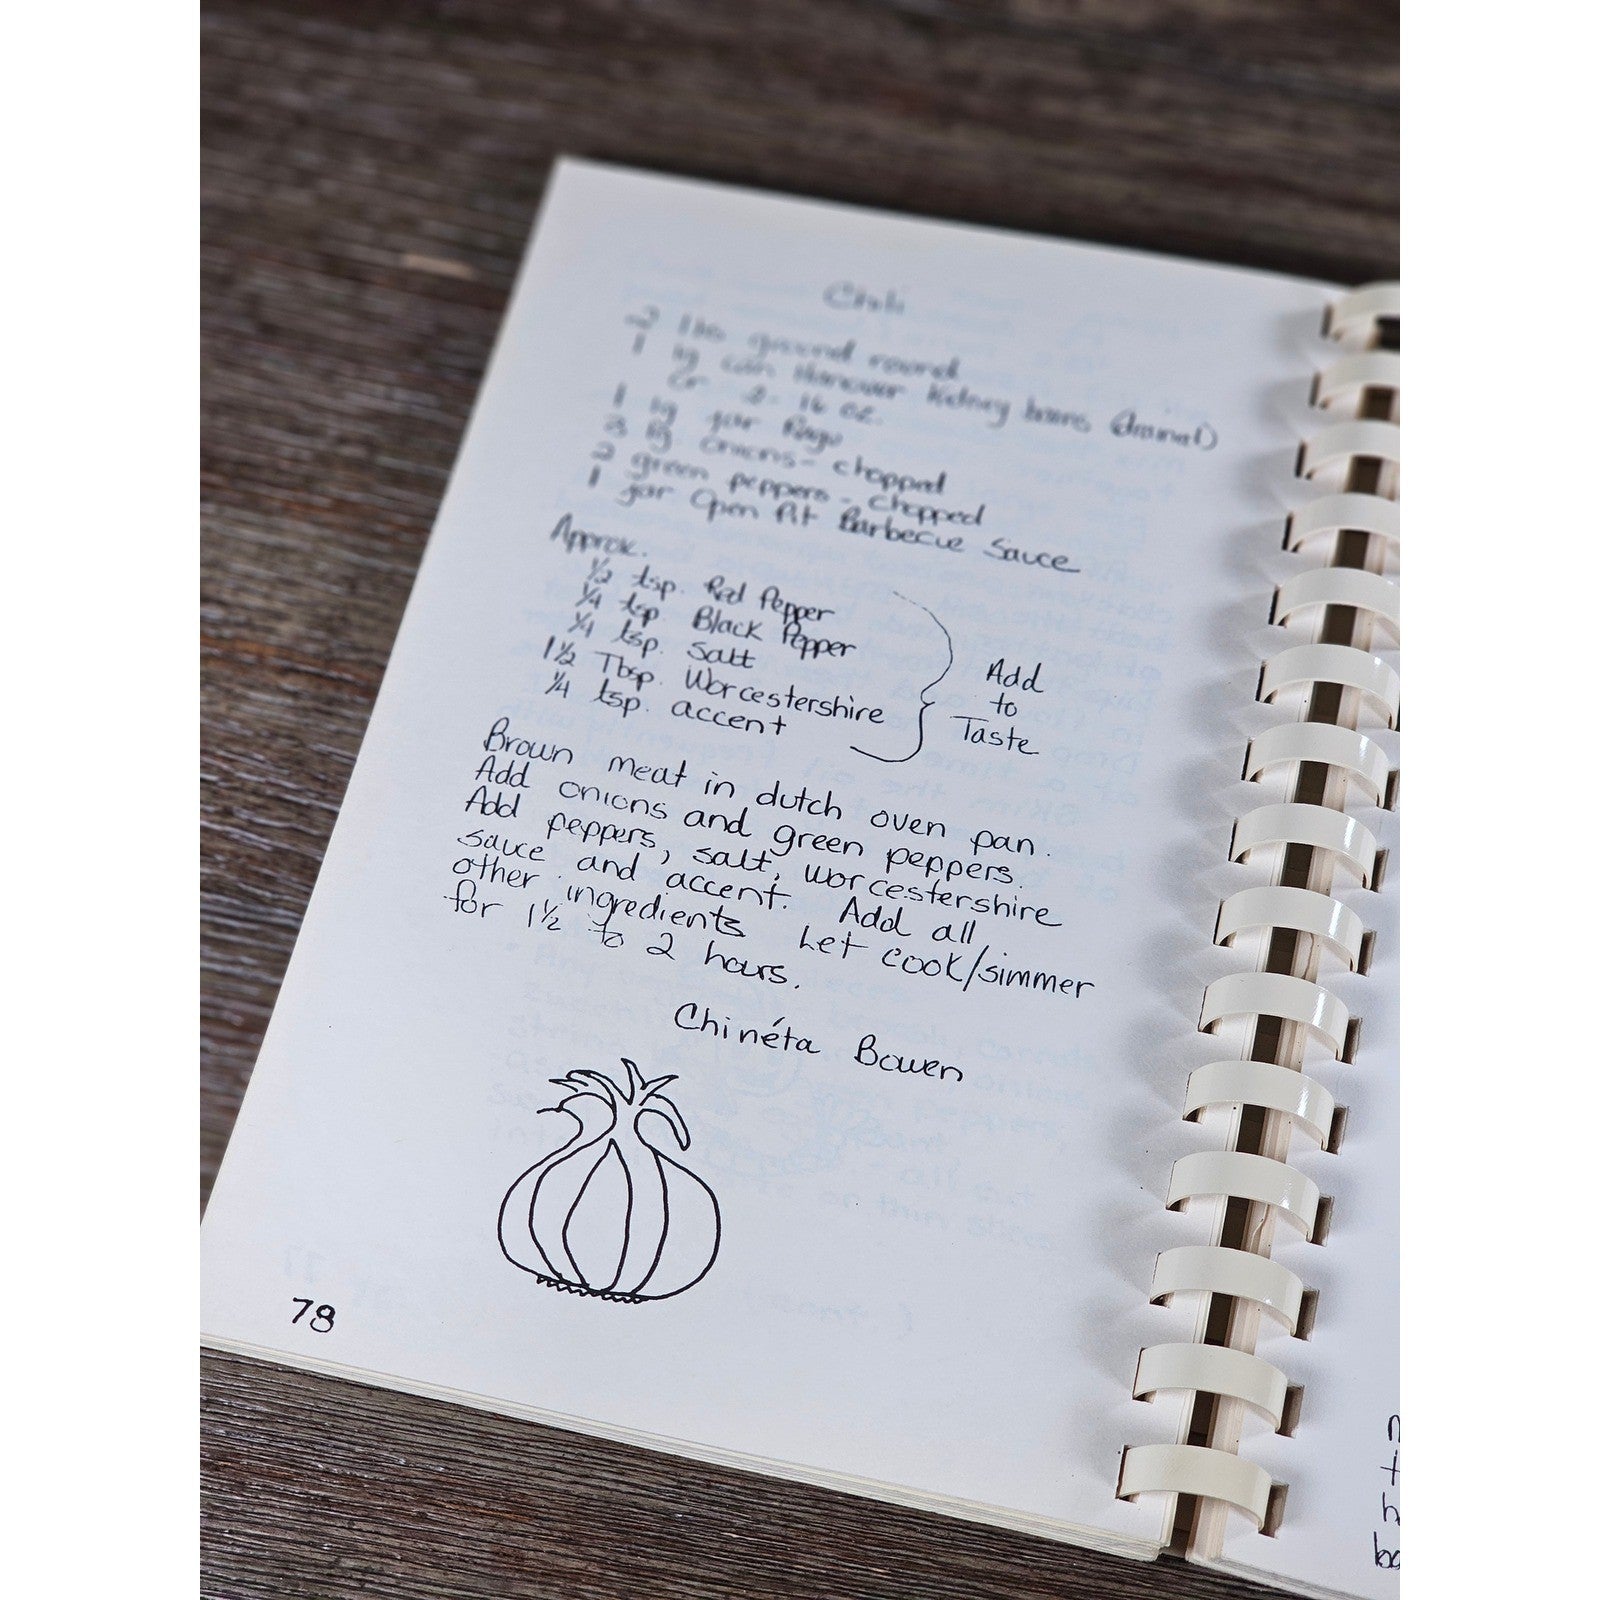 Chili
2 lbs ground round
1 lg can Hanover Kidney beans (drained)
or 2- 16 oz.
1 lg jar Ragu
3 lg onions- chopped
2 green peppers - chopped
1 jar Open Pit Barbecue Sauce
Approx.
1/2 tsp. Red Pepper
1/4 tsp Black Pepper
1/4 tsp. Salt
1 1/2 Tbsp. Worcestershire
1/4 tsp. accent
Add
to
Taste
Brown meat in dutch oven pan.
Add onions and green peppers.
Add peppers, salt, worcestershire
sauce and accent. Add all
other ingredients Let cook/simmer
for 1 1/2 to 2 hours.
Chinéta Bowen
78